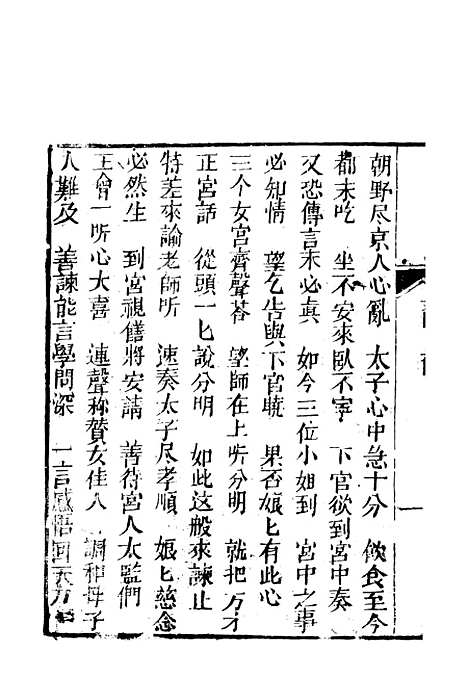 朝野尽京人心亂　太子心中急十分　飲食至今
都未吃　坐不安來臥不寧　下官欲到宮中奏
又恐傳言未必眞　如今三位小姐到　宮中之事
必知情　望乞告與下官曉　果否娘匕有此心
三个女官齊聲荅　望師在上听分明　就把方才
正宮話　從頭一匕說分明　如此这般來諫止
特差來諭老師所　速奏太子尽孝順　娘匕慈念
必然生　到宮視膳將安請　善待宮人太監們
王會一听心大喜　連聲称賛女佳人　調和母子
人難及　善諫能言學問深　一言感悟回天力